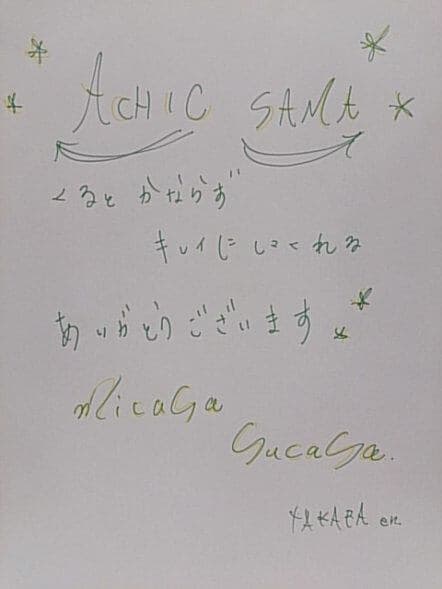 ACHIC SAMA
くると かならず
キレイにしてくれる
ありがとうございます
micaGa
SucaSa.
TAKARA en